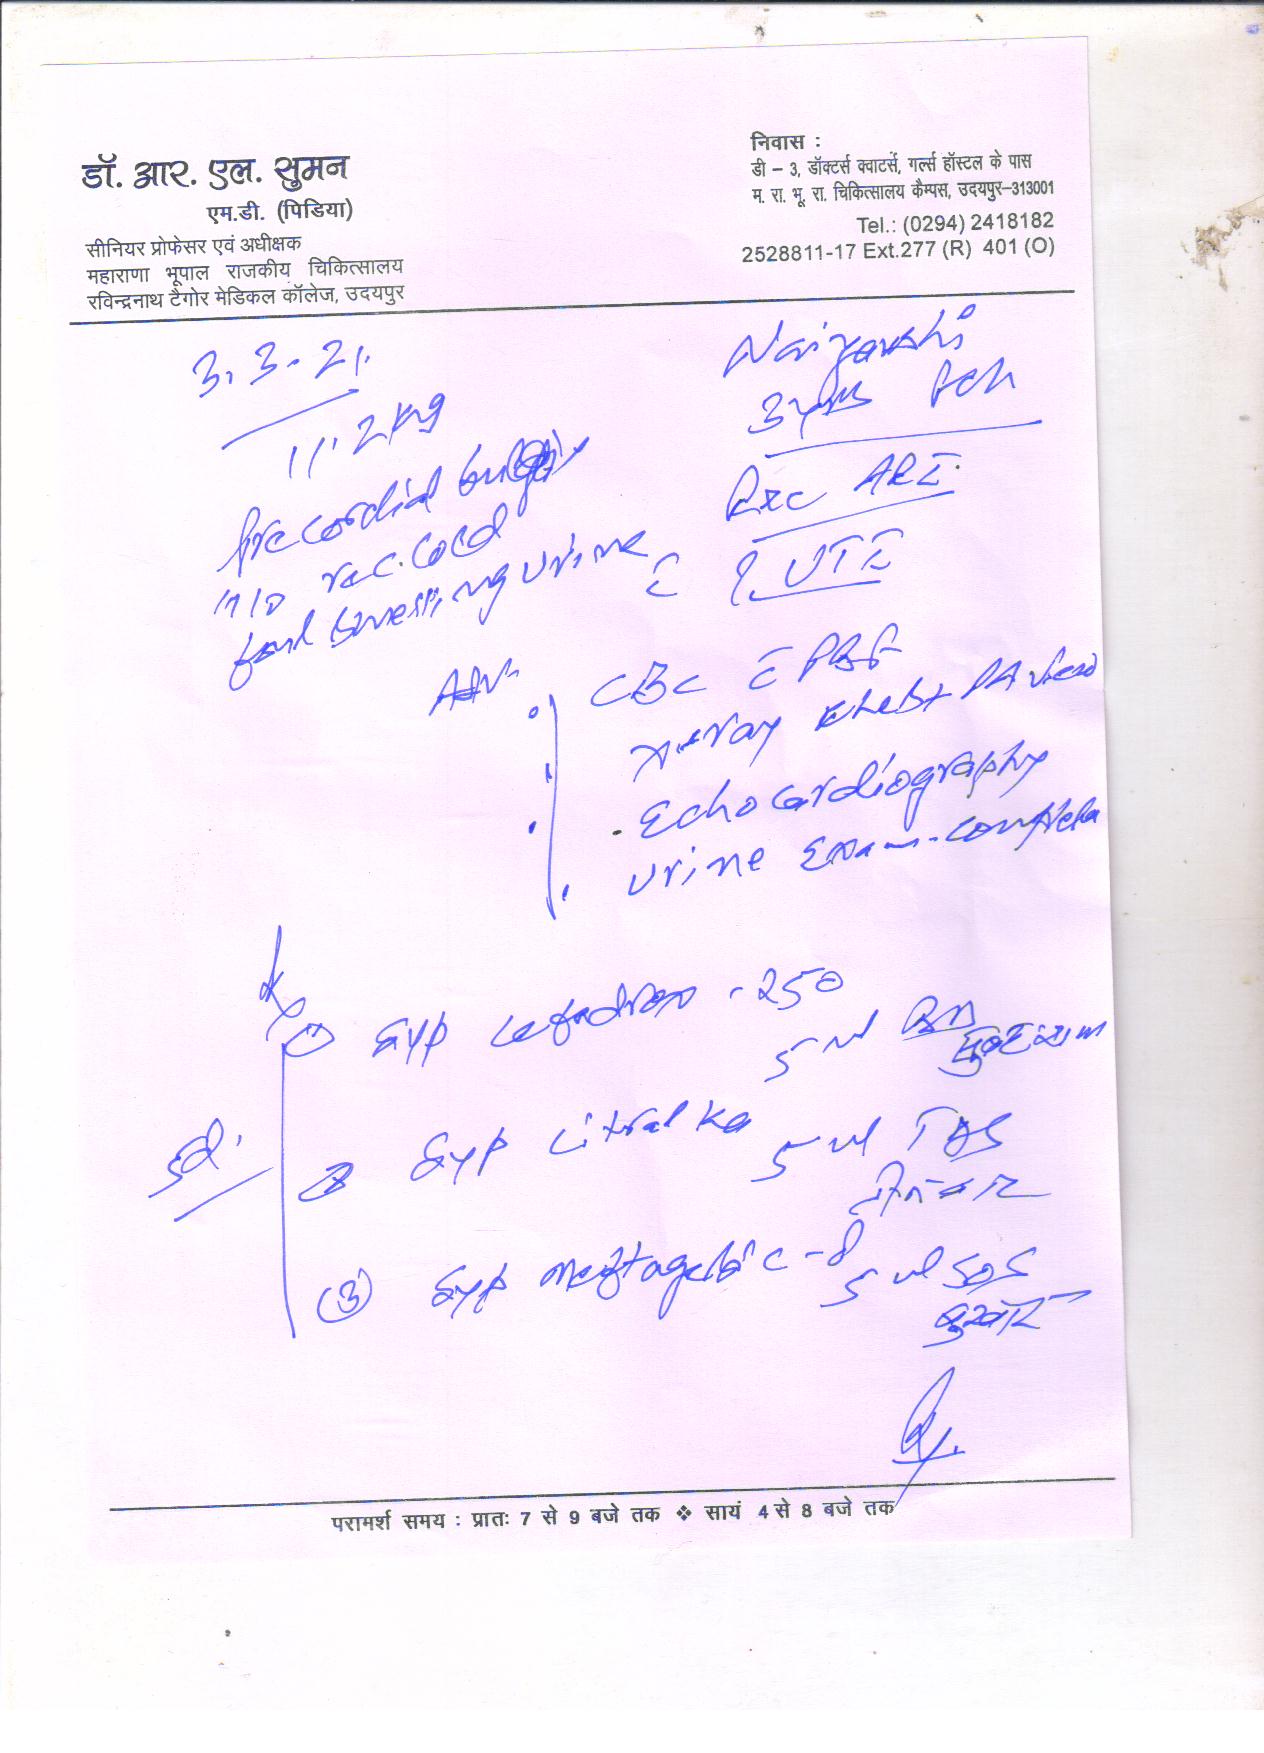 डॉ. आर. एल. सुमन
एम.डी. (पिडिया)
सीनियर प्रोफेसर एवं अधीक्षक
महाराणा भूपाल राजकीय चिकित्सालय
रविन्द्रनाथ टैगोर मेडिकल कॉलेज, उदयपुर
निवास :
डी – 3, डॉक्टर्स क्वाटर्स, गर्ल्स हॉस्टल के पास
म. रा. भू. रा. चिकित्सालय कैम्पस, उदयपुर–313001
Tel.: (0294) 2418182
2528811-17 Ext.277 (R) 401 (O)
3.3.21.
11.2 kg
Naiyanshi
3 yrs Fch
Precordial
H/o rec. cold
foul smelling urine
Rec ARI.
c ? UTI
Adv.
CBC c PBF
X-ray chest PA view
Echocardiography
urine Exam-complete
1 Syp cefadrox - 250
5 ml BD
सुबह शाम
2 Syp citralka
5 ml TDS
3 Syp meftagesic - P
5 ml SOS
बुखार
5d.
परामर्श समय : प्रातः 7 से 9 बजे तक ❖ सायं 4 से 8 बजे तक